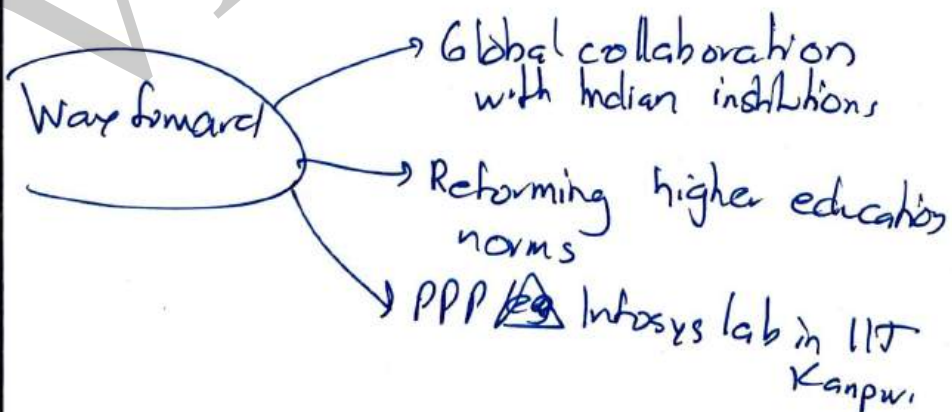 Way forward
Global collaboration
with Indian institutions
Reforming higher education
norms
PPP eg Infosys lab in IIT
Kanpur